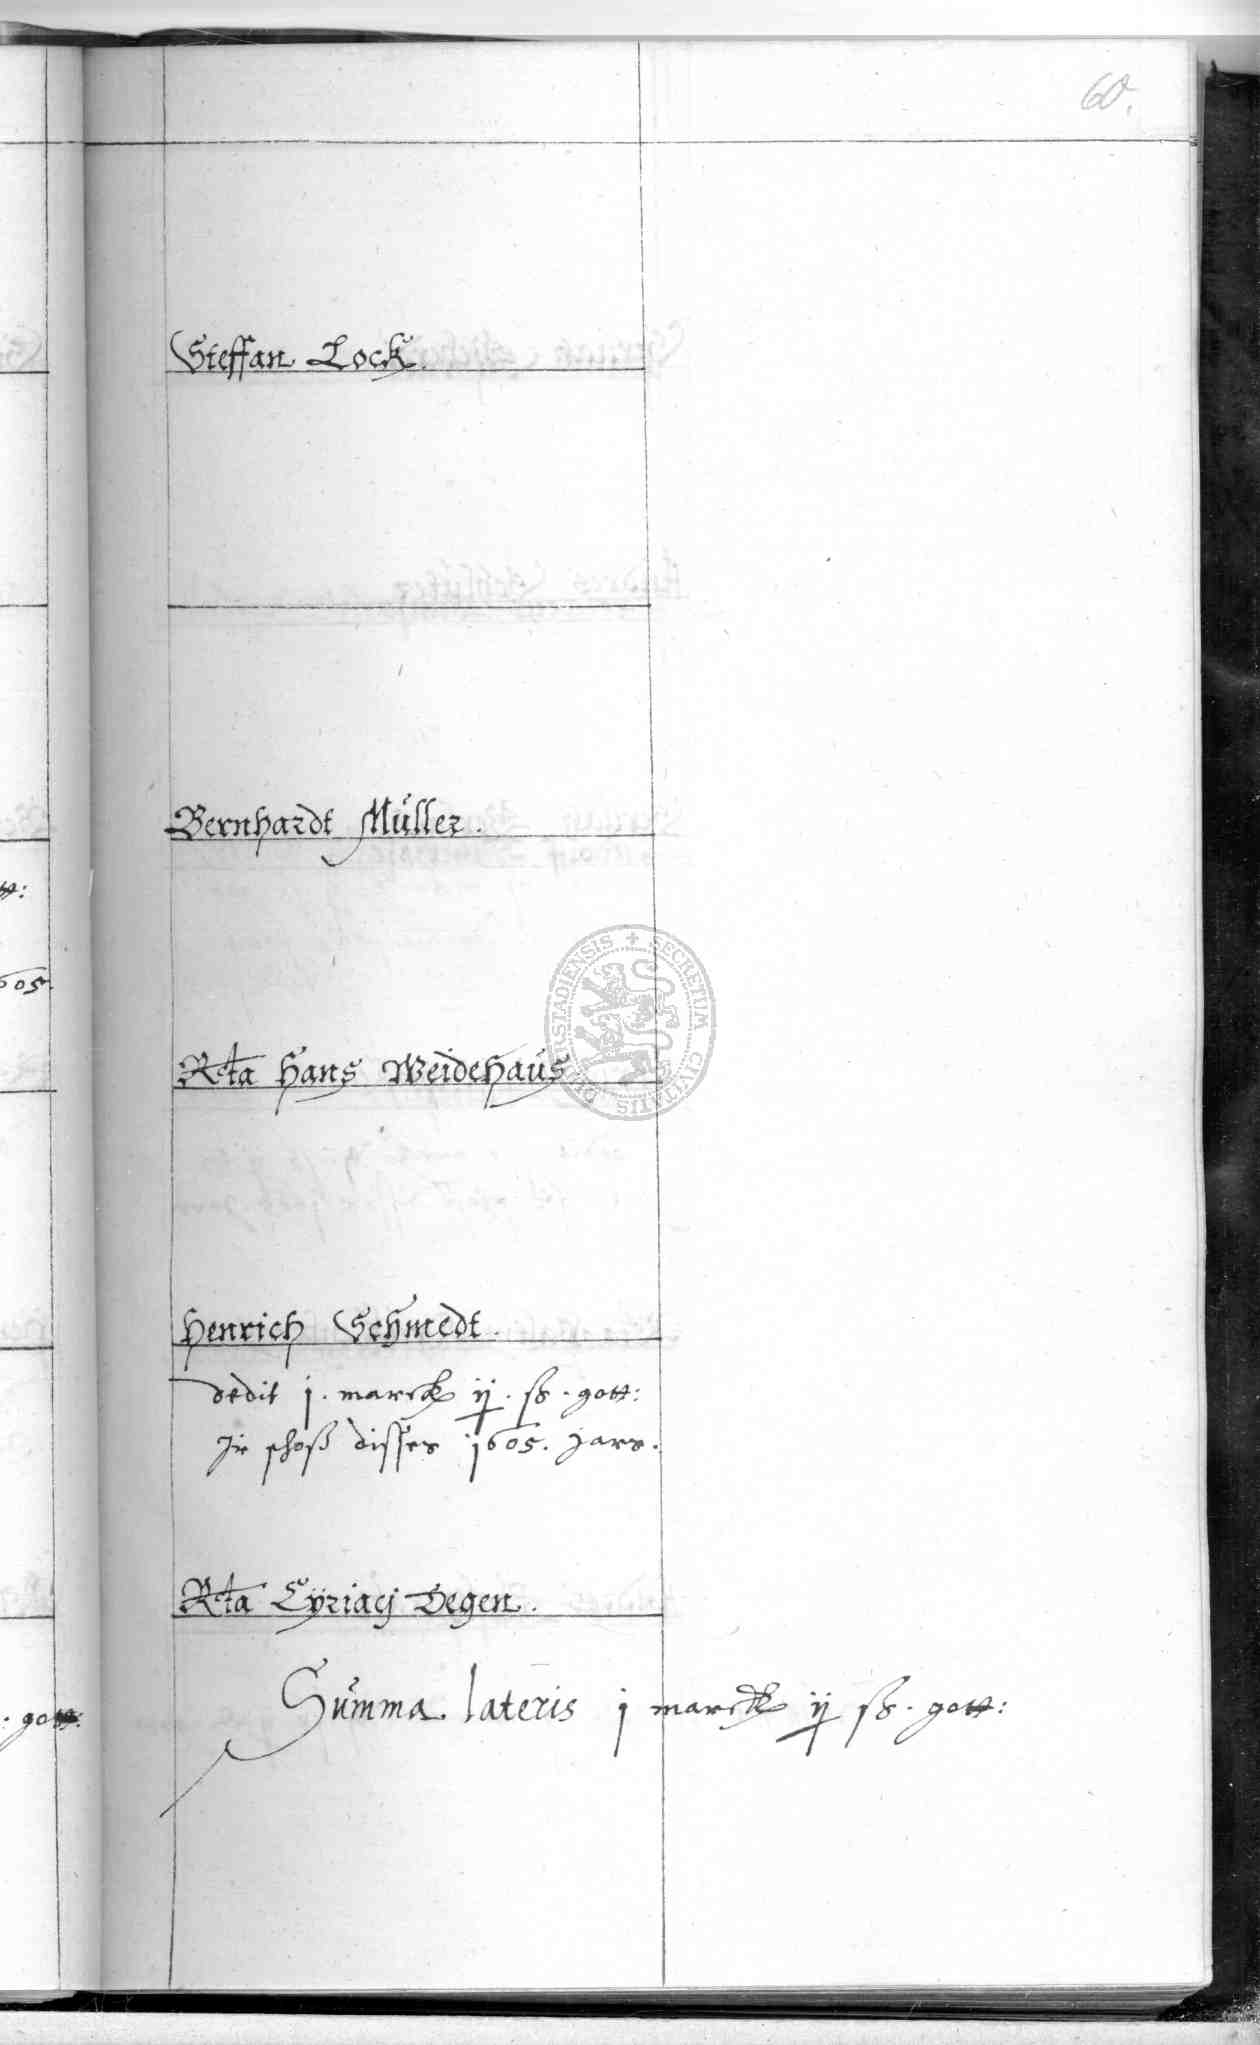 60.
Steffan Lock.
Bernhardt Müller.
Rta Hans Weidehaus
Henrich Schmedt.
dedit j. marck ij. ß. gott:
Ir schoß disses 1605. jars.
Rta Cyriacj Degen.
Summa lateris j marck ij ß. gott:
605.
. gott:
SECRETUM CIVITATIS DUDERSTADIENSIS